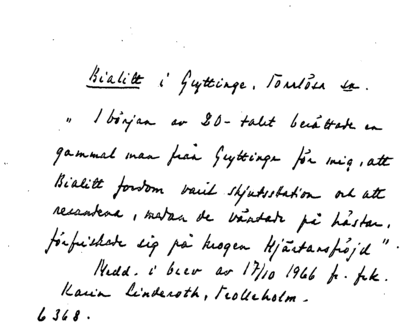 Bialitt i Gryttinge, Torrlösa sn.
"I början av 20-talet berättade en
gammal man från Gryttinge för mig, att
Bialitt fordom varit skjutsstation och att
resandena, medan de väntade på hästar,
förfriskade sig på krogen Hjärtansfröjd".
Medd. i brev av 17/10 1966 fr. frk.
Karin Linderoth, Trolleholm.
6368.